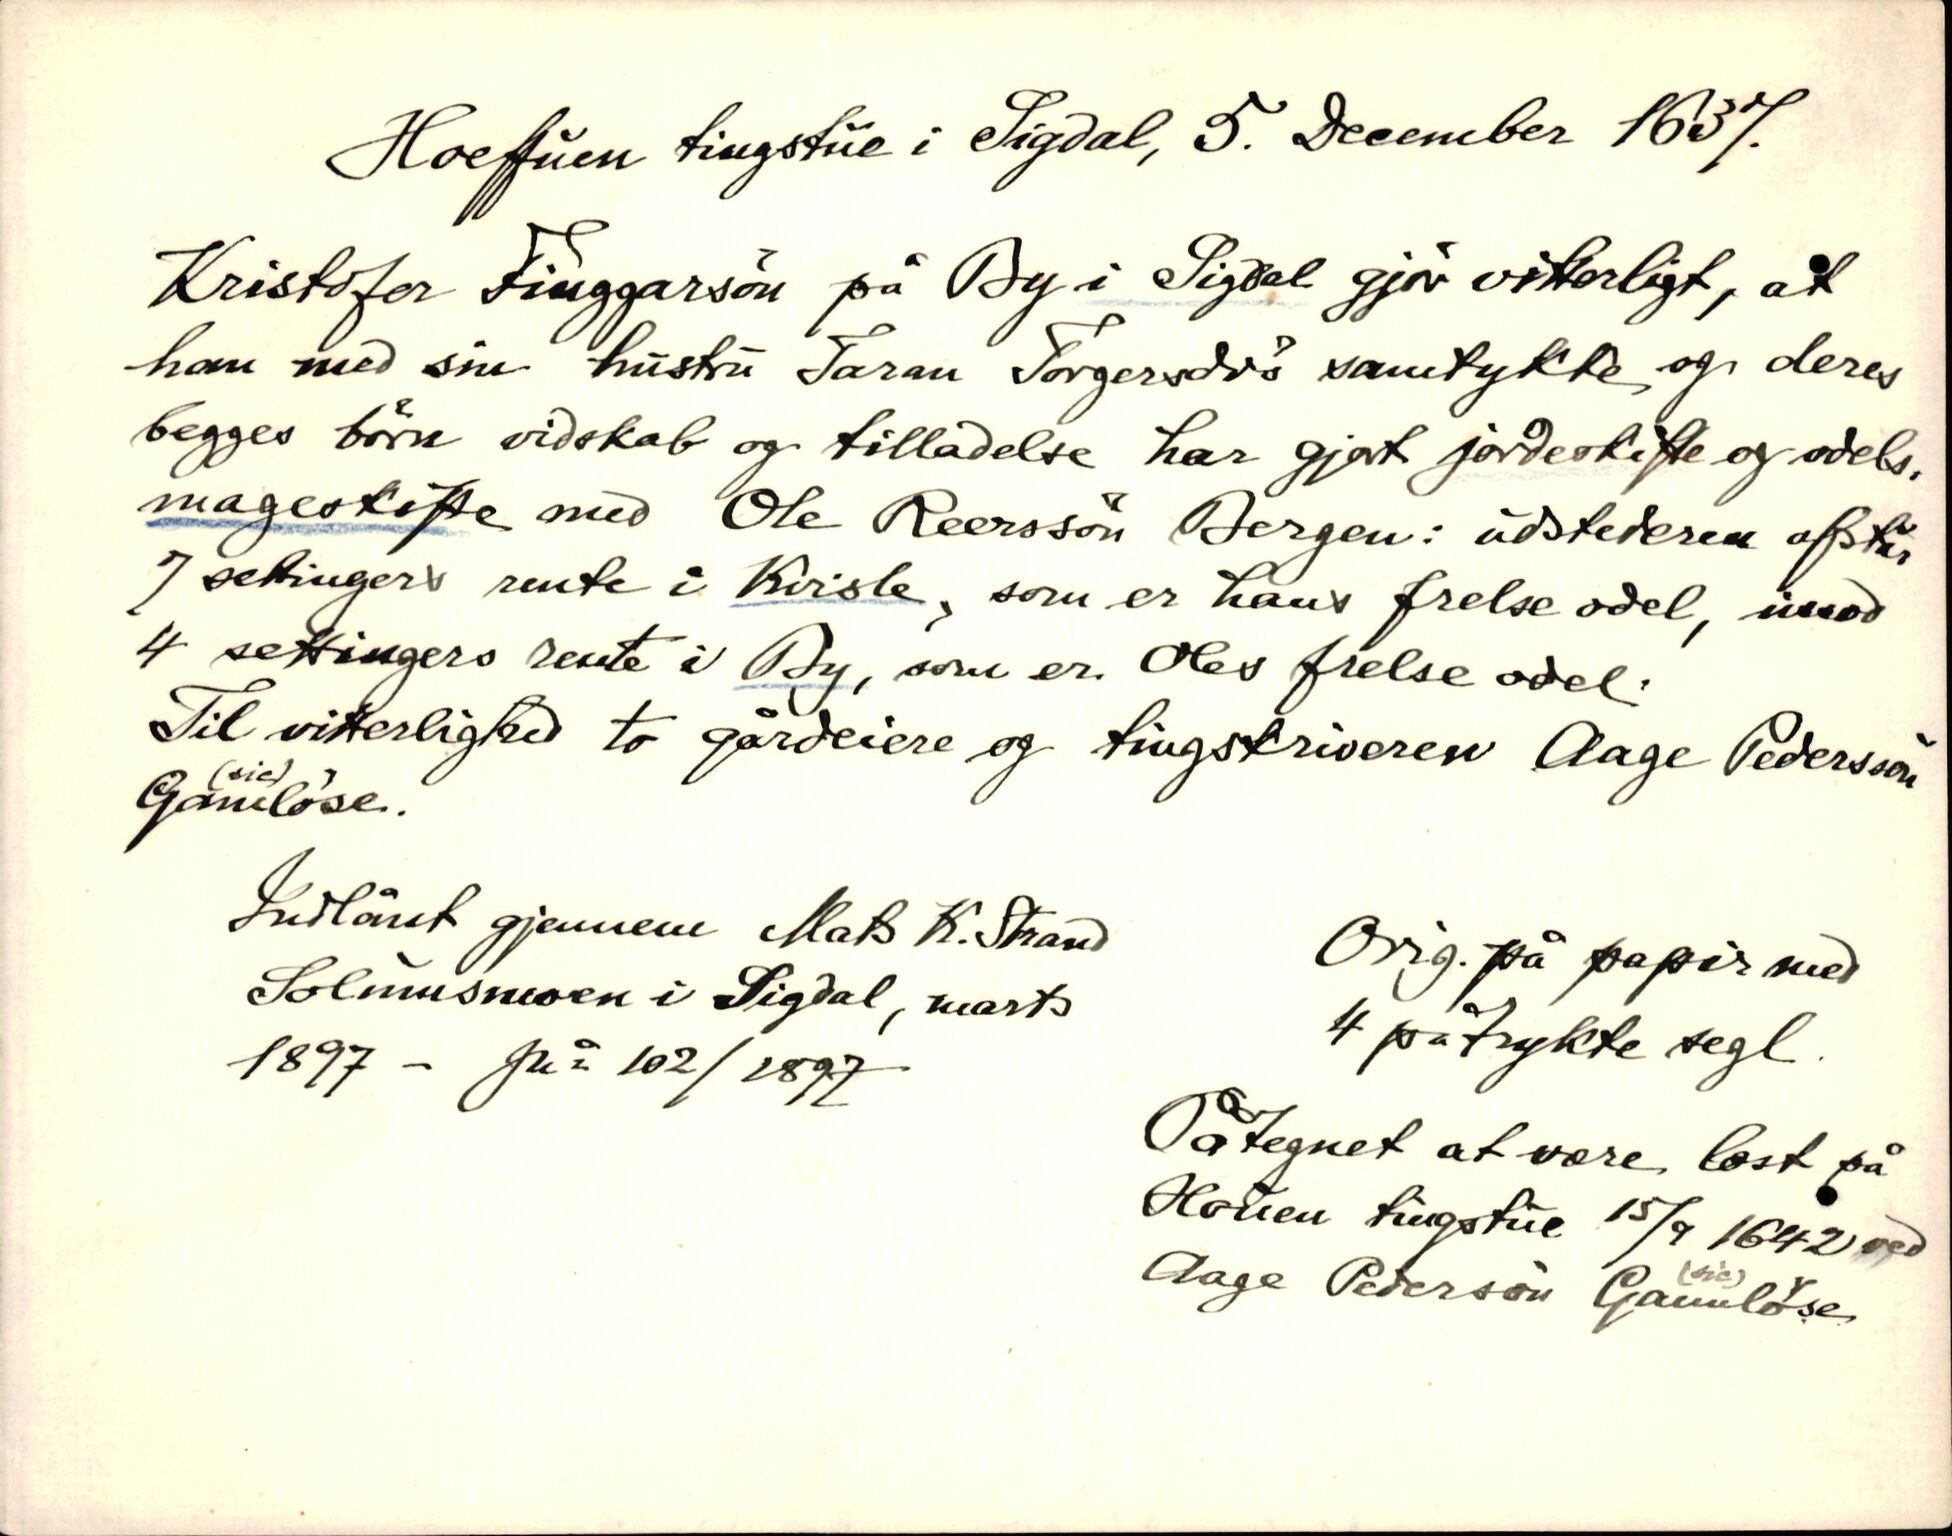 Hoeffuen tingstue i Sigdal, 5. December 1637.
Kristofer Finggarsön på By i Sigdal gjör vitterligt, at
han med sin hustru Taran Torgersdr's samtykke og deres
begges börn vidskab og tilladelse har gjort jordeskifte og odels-
mageskifte med Ole Reerssön Bergen: udstederen afstår
7 settingers rente i Kvisle, som er hans frelse odel, imod
4 settingers rente i By, som er Oles frelse odel.
Til vitterlighed to gårdeiere og tingskriveren Aage Pederssön
Gamlöse. (sic)
Indlånt gjennem Mats K. Strand
Solumsmoen i Sigdal, marts
1897 – Jn: 102/1897
Orig. på papir med
4 påtrykte segl.
Påtegnet at være læst på
Houen tingstue 15/9 1642 ved
Aage Pedersön Gamlöse (sic)